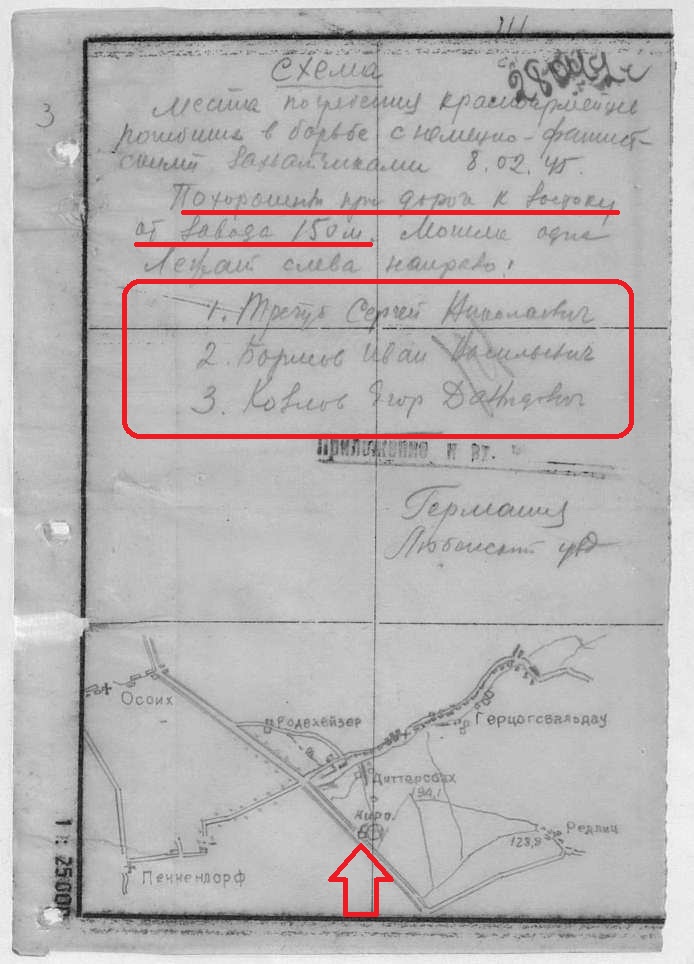 111
28004с
3
Схема
места погребения красноармейцев
погибших в борьбе с немецко-фашист-
скими захватчиками 8.02.45.
Похоронены при дороге к востоку
от завода 150 м. Могила одна
Лежат слева направо:
1. Трегуб Сергей Николаевич
2. Борисов Иван Васильевич
3. Козлов Егор Данидович
Приложение к вх.
Германия
Любенский
Осоих
Родехейзер
Герцогсвальдау
Диттерсбах
194,1
Кирп.
Редлиц
128,9
Пеннендорф
1 : 2500